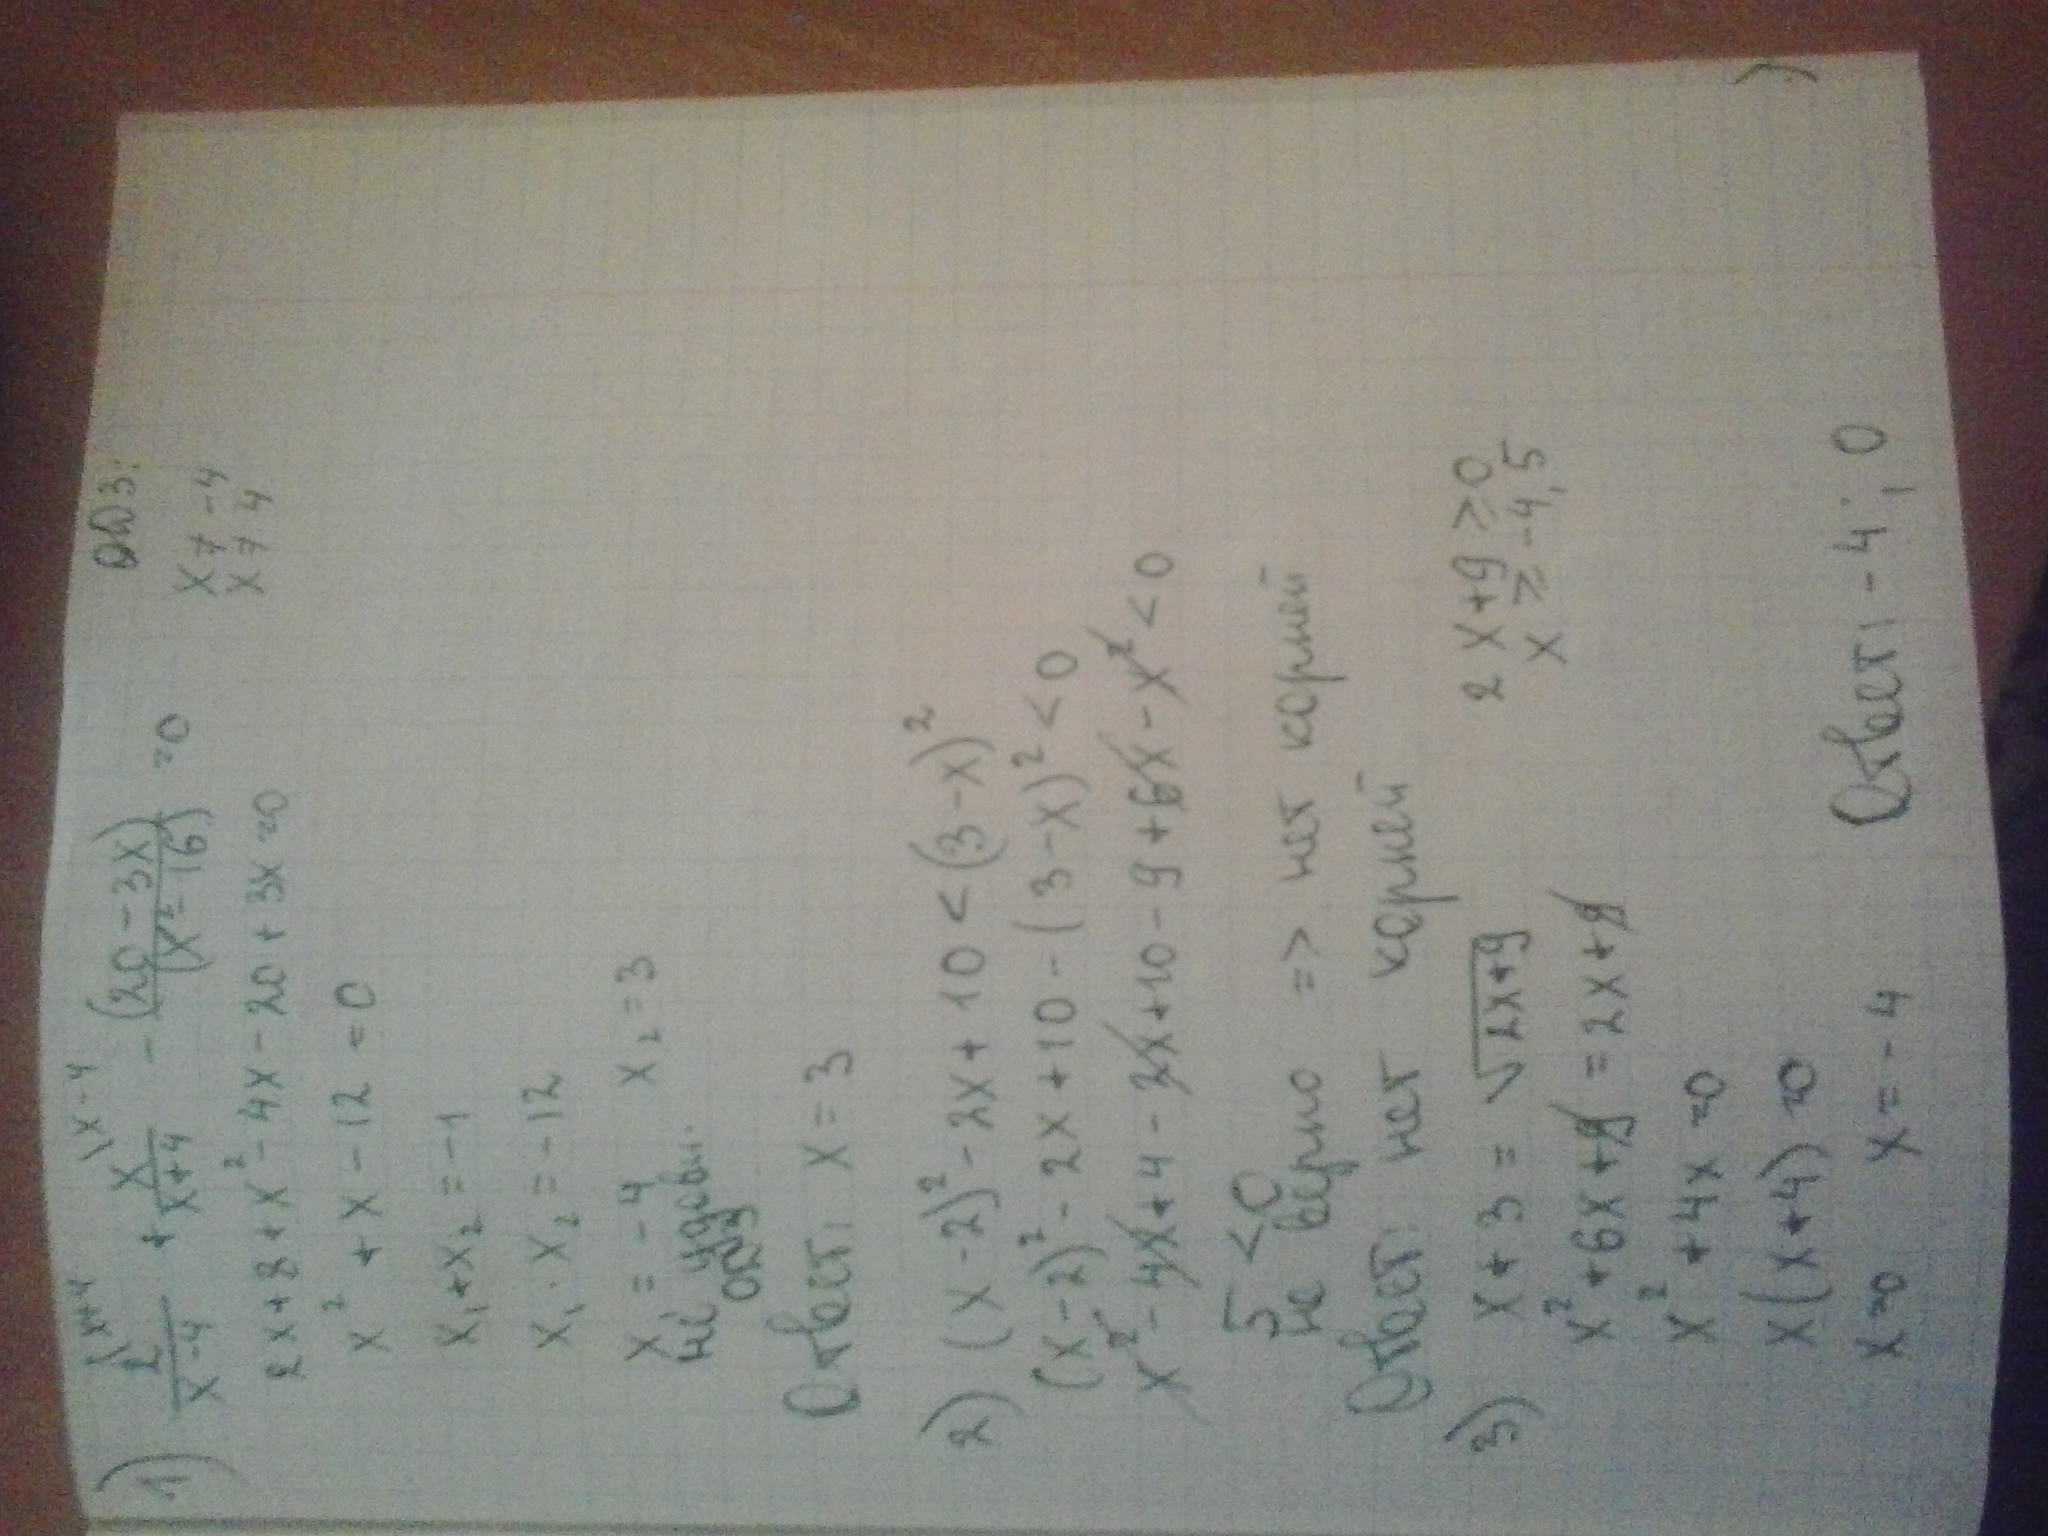 1) 2\x+4/(x-4) + x\x-4/(x+4) - (20-3x)/(x²-16) =0 ОДЗ:
x≠-4
2x+8+x²-4x-20+3x=0 x≠4
x²+x-12=0
x₁+x₂=-1
x₁·x₂=-12
x₁=-4 x₂=3
не удовл.
ОДЗ
Ответ: x=3
2) (x-2)²-2x+10<(3-x)²
(x-2)²-2x+10-(3-x)²<0
x²-4x+4-2x+10-9+6x-x²<0
5<0
не верно => нет корней
Ответ: нет корней
3) x+3=√2x+9 2x+9≥0
x²+6x+9=2x+9 x≥-4,5
x²+4x=0
x(x+4)=0
x=0 x=-4 Ответ: -4; 0